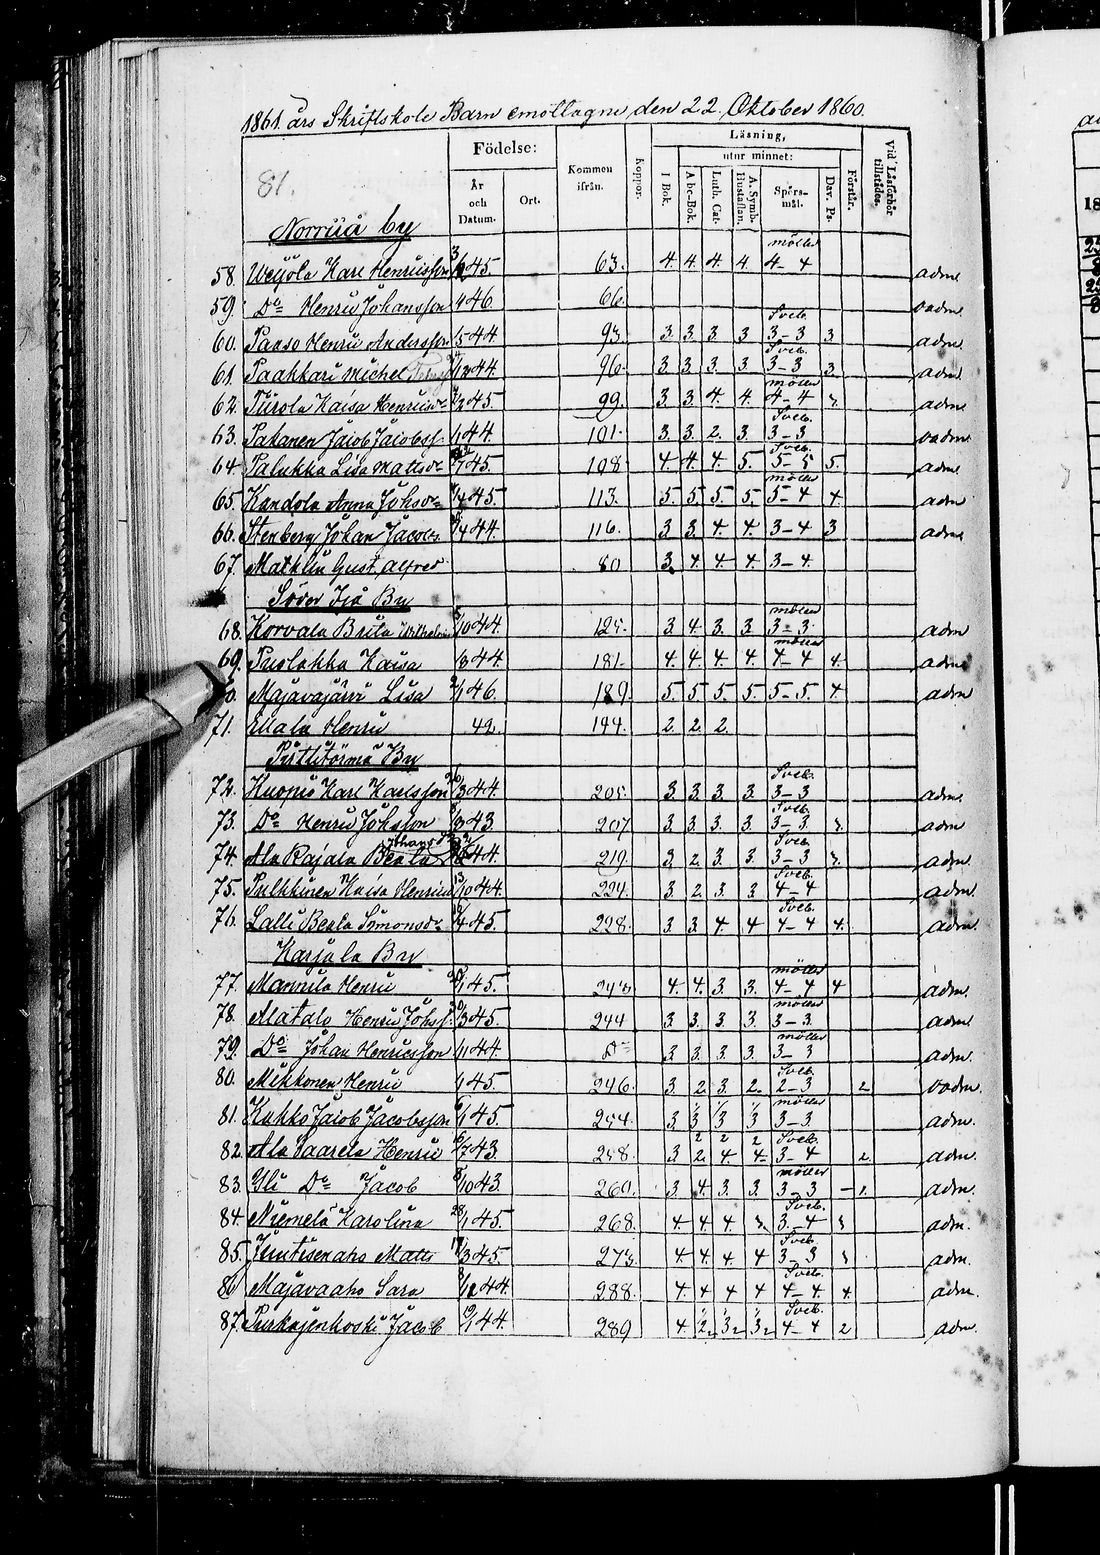 1861 års Skriftskole Barn emottagne den 22 Oktober 1860.
Födelse: Kommen ifrån. Koppor. Läsning, utur minnet: Vid Läsförhör tillstädes.
81. År och Datum. Ort. I Bok. Abc-Bok. Luth. Cat. A. Symb. Hustaflan. Spörs-mål. Dav. Ps. Förstår.
Norriiå by
58. Karl Henriksson 45. 63. 4. 4. 4. 4. möller 4-4 adm
59. Do Henric Johansson 446 66. oadm
60. Paaso Henric Andersson 544 93. 3. 3. 3. 3 Sveb. 3-3 3 adm
61. Paakkari Michel 44. 96. 3. 3. 3. 3. Sveb. 3-3 3. adm
62. Kaisa 45. 99. 3. 3. 4. 4. möller 4-4 adm
63. Jacob Jacobss. 44. 101. 3. 3. 2. 3. Sveb. 3-3 oadm
64. Palukka Lisa Mattsdr 45. 108 4. 4. 4. 5. Sveb. 5-5 5. adm
65. Kandola Anna Johsdr 45. 113. 5. 5. 5. 5. möller 5-4 4. adm
66. Stenberg Johan Jacobs. 44. 116. 3. 3. 4. 4. 3-4 3 adm
67. Gust. Alfred 80 3. 4. 4. 4. 3-4.
Söder Ijå By
68. Korvala Brita 44. 3. 4. 3. 3. möller 3-3 adm
69. Kaisa 44. 181. 4. 4. 4. 4. möller 4-4 4. adm
70. Majavajärvi Lisa 2/1 46. 189. 5. 5. 5. 5. 5-5. 4. adm
71. Henric 42. 194. 2. 2. 2.
By
72. Kuopio Karl Karlsson 44. 205. 3. 3. 3. 3. Sveb. 3-3 adm.
73. Do Henric Johsson 43. 207 3. 3. 3. 3. Sveb. 3-3 adm
74. Ala Rajala Beata 44. 219. 3. 2. 3. 3. Sveb. 3-3 adm.
75. Pulkkinen Kaisa 13/10 44. 224. 3. 2. 3. 3 Sveb. 4-4 adm.
76. Lalli Beata Simonsdr 45. 228. 3. 3. 4. 4 Sveb. 4-4 4. adm.
Karjala By
77. Mannila Henric 45. 4. 4. 3. 3. möller 4-4 4 adm.
78. Matalo Henric Johss. 45. 244 3. 3. 3. 3. möller 3-3. adm
79. Do Johan Henricsson 44. Do 3. 3. 3. 3. möller 3-3 adm.
80. Mikkonen Henric 45. 246. 3. 2. 3. 2. Sveb. 2-3 2. oadm.
81. Kukko Jacob Jacobsson 45. 254. 3. 3 3 3 möller 3-3. adm.
82. Ala Saarela Henric 43. 258. 3. 2. 4. 4. Sveb. 3-4 2. adm.
83. Yli Do Jacob 8/10 43. 260. 3. 4. 3. 3. möller 3-3 - 1. adm.
84. Niemelä Karolina 28/1 45. 268. 4. 4. 4. Sveb. 3-4 adm.
85. Matts 17/3 45. 273. 4. 4. 4. 4 Sveb. 3-3 adm.
86 Majavaaho Sara 44. 288. 4. 4 4 4 Sveb. 4-4. 4 adm.
87. Purkajenkoski Jacob 44. 289 4. 2. 3 3 Sveb. 4-4 2 adm.